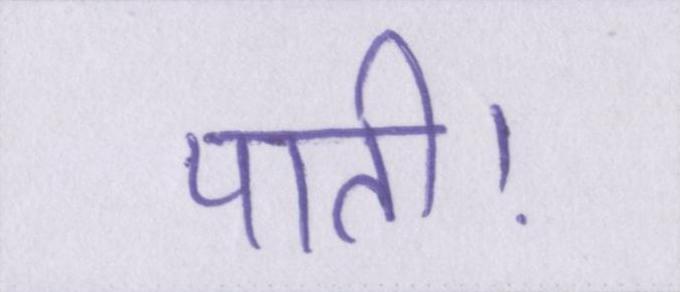 पाती!